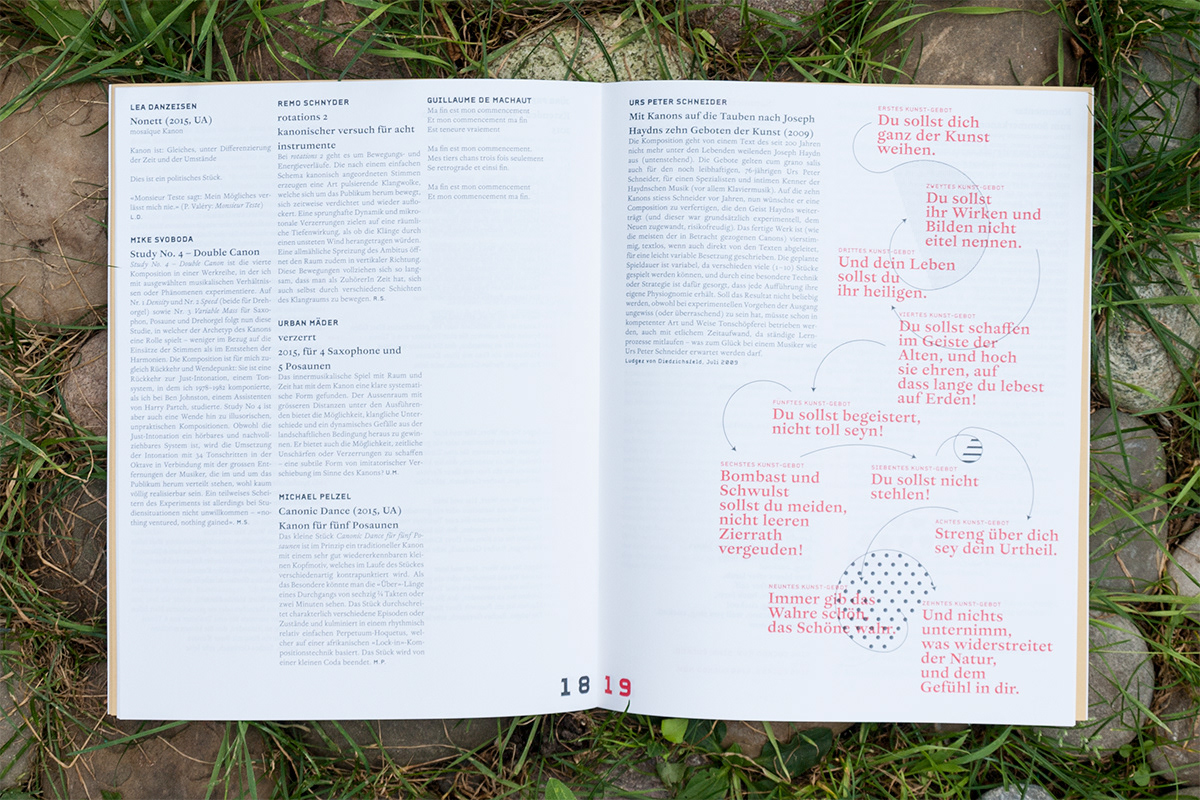 LEA DANZEISEN
Nonett (2015, UA)
mosaïque Kanon
Kanon ist: Gleiches, unter Differenzierung
der Zeit und der Umstände
Dies ist ein politisches Stück.
«Monsieur Teste sagt: Mein Mögliches ver-
lässt mich nie.» (P. Valéry: Monsieur Teste)
L.D.
MIKE SVOBODA
Study No. 4 – Double Canon
Study No. 4 – Double Canon ist die vierte
Komposition in einer Werkreihe, in der ich
mit ausgewählten musikalischen Verhältnis-
sen oder Phänomenen experimentiere. Auf
Nr. 1 Density und Nr. 2 Spiral (beide für Dreh-
orgel) sowie Nr. 3 Variable Mass für Saxo-
phon, Posaune und Drehorgel folgt nun diese
Studie, in welcher der Archetyp des Kanons
eine Rolle spielt – weniger im Bezug auf die
Einsätze der Stimmen als im Entstehen der
Harmonien. Die Komposition ist für mich zu-
gleich Rückkehr und Wendepunkt: Sie ist eine
Rückkehr zur Just-Intonation, einem Ton-
system, in dem ich 1978–1982 komponierte,
als ich bei Ben Johnston, einem Assistenten
von Harry Partch, studierte. Study No 4 ist
aber auch eine Wende hin zu illusorischen,
unpraktischen Kompositionen. Obwohl die
Just-Intonation ein hörbares und nachvoll-
ziehbares System ist, wird die Umsetzung
der Intonation mit 34 Tonschritten in der
Oktave in Verbindung mit der grossen Ent-
fernungen der Musiker, die im und um das
Publikum herum verteilt stehen, wohl kaum
völlig realisierbar sein. Ein teilweises Schei-
tern des Experiments ist allerdings bei Stu-
diensituationen nicht unwillkommen – «no-
thing ventured, nothing gained». M.S.
REMO SCHNYDER
rotations 2
kanonischer versuch für acht
instrumente
Bei rotations 2 geht es um Bewegungs- und
Energieverläufe. Die nach einem einfachen
Schema kanonisch angeordneten Stimmen
erzeugen eine Art pulsierende Klangwolke,
welche sich um das Publikum herum bewegt,
sich zeitweise verdichtet und wieder auflo-
ckert. Eine sprunghafte Dynamik und mikro-
tonale Verzerrungen zielen auf eine räumli-
che Tiefenwirkung, als ob die Klänge durch
einen unsteten Wind herangetragen würden.
Eine allmähliche Spreizung des Ambitus öff-
net den Raum zudem in vertikaler Richtung.
Diese Bewegungen vollziehen sich so lang-
sam, dass man als ZuhörerIn Zeit hat, sich
auch selbst durch verschiedene Schichten
des Klangraums zu bewegen. R.S.
URBAN MÄDER
verzerrt
2015, für 4 Saxophone und
5 Posaunen
Das innermusikalische Spiel mit Raum und
Zeit hat mit dem Kanon eine klare systemati-
sche Form gefunden. Der Aussenraum mit
grösseren Distanzen unter den Ausführen-
den bietet die Möglichkeit, klangliche Unter-
schiede und ein dynamisches Gefälle aus der
landschaftlichen Bedingung heraus zu gewin-
nen. Er bietet auch die Möglichkeit, zeitliche
Unschärfen oder Verzerrungen zu schaffen
– eine subtile Form von imitatorischer Ver-
schiebung im Sinne des Kanons? U.M.
MICHAEL PELZEL
Canonic Dance (2015, UA)
Kanon für fünf Posaunen
Das kleine Stück Canonic Dance für fünf Po-
saunen ist im Prinzip ein traditioneller Kanon
mit einem sehr gut wiedererkennbaren klei-
nen Kopfmotiv, welches im Laufe des Stückes
verschiedenartig kontrapunktiert wird. Als
das Besondere könnte man die «Über»-Länge
eines Durchgangs von sechzig ¾ Takten oder
zwei Minuten sehen. Das Stück durchschrei-
tet charakterlich verschiedene Episoden oder
Zustände und kulminiert in einem rhythmisch
relativ einfachen Perpetuum-Hoquetus, wel-
cher auf einer afrikanischen «Lock-in»-Kom-
positionstechnik basiert. Das Stück wird von
einer kleinen Coda beendet. M.P.
GUILLAUME DE MACHAUT
Ma fin est mon commencement
Et mon commencement ma fin
Est teneure vraiement
Ma fin est mon commencement.
Mes tiers chans trois fois seulement
Se retrograde et einsi fin.
Ma fin est mon commencement
Et mon commencement ma fin.
18
URS PETER SCHNEIDER
Mit Kanons auf die Tauben nach Joseph
Haydns zehn Geboten der Kunst (2009)
Die Komposition geht von einem Text des seit 200 Jahren
nicht mehr unter den Lebenden weilenden Joseph Haydn
aus (untenstehend). Die Gebote gelten cum grano salis
auch für den noch leibhaftigen, 76-jährigen Urs Peter
Schneider, für einen Spezialisten und intimen Kenner der
Haydnschen Musik (vor allem Klaviermusik). Auf die zehn
Kanons stiess Schneider vor Jahren, nun wünschte er eine
Composition zu verfertigen, die den Geist Haydns weiter-
trägt (und dieser war grundsätzlich experimentell, dem
Neuen zugewandt, risikofreudig). Das fertige Werk ist (wie
die meisten der in Betracht gezogenen Canons) vierstim-
mig, textlos, wenn auch direkt von den Texten abgeleitet,
für eine leicht variable Besetzung geschrieben. Die geplante
Spieldauer ist variabel, da verschieden viele (1–10) Stücke
gespielt werden können, und durch eine besondere Technik
oder Strategie ist dafür gesorgt, dass jede Aufführung ihre
eigene Physiognomie erhält. Soll das Resultat nicht beliebig
werden, obwohl bei experimentellen Vorgehen der Ausgang
ungewiss (oder überraschend) zu sein hat, müsste schon in
kompetenter Art und Weise Tonschöpferei betrieben wer-
den, auch mit etlichem Zeitaufwand, da ständige Lern-
prozesse mitlaufen – was zum Glück bei einem Musiker wie
Urs Peter Schneider erwartet werden darf.
Ludger von Diedrichsfeld, Juli 2009
ERSTES KUNST-GEBOT
Du sollst dich
ganz der Kunst
weihen.
ZWEYTES KUNST-GEBOT
Du sollst
ihr Wirken und
Bilden nicht
eitel nennen.
DRITTES KUNST-GEBOT
Und dein Leben
sollst du
ihr heiligen.
VIERTES KUNST-GEBOT
Du sollst schaffen
im Geiste der
Alten, und hoch
sie ehren, auf
dass lange du lebest
auf Erden!
FÜNFTES KUNST-GEBOT
Du sollst begeistert,
nicht toll seyn!
SECHSTES KUNST-GEBOT
Bombast und
Schwulst
sollst du meiden,
nicht leeren
Zierrath
vergeuden!
SIEBENTES KUNST-GEBOT
Du sollst nicht
stehlen!
ACHTES KUNST-GEBOT
Streng über dich
sey dein Urtheil.
NEUNTES KUNST-GEBOT
Immer gib das
Wahre schön,
das Schöne wahr.
ZEHNTES KUNST-GEBOT
Und nichts
unternimm,
was widerstreitet
der Natur,
und dem
Gefühl in dir.
19